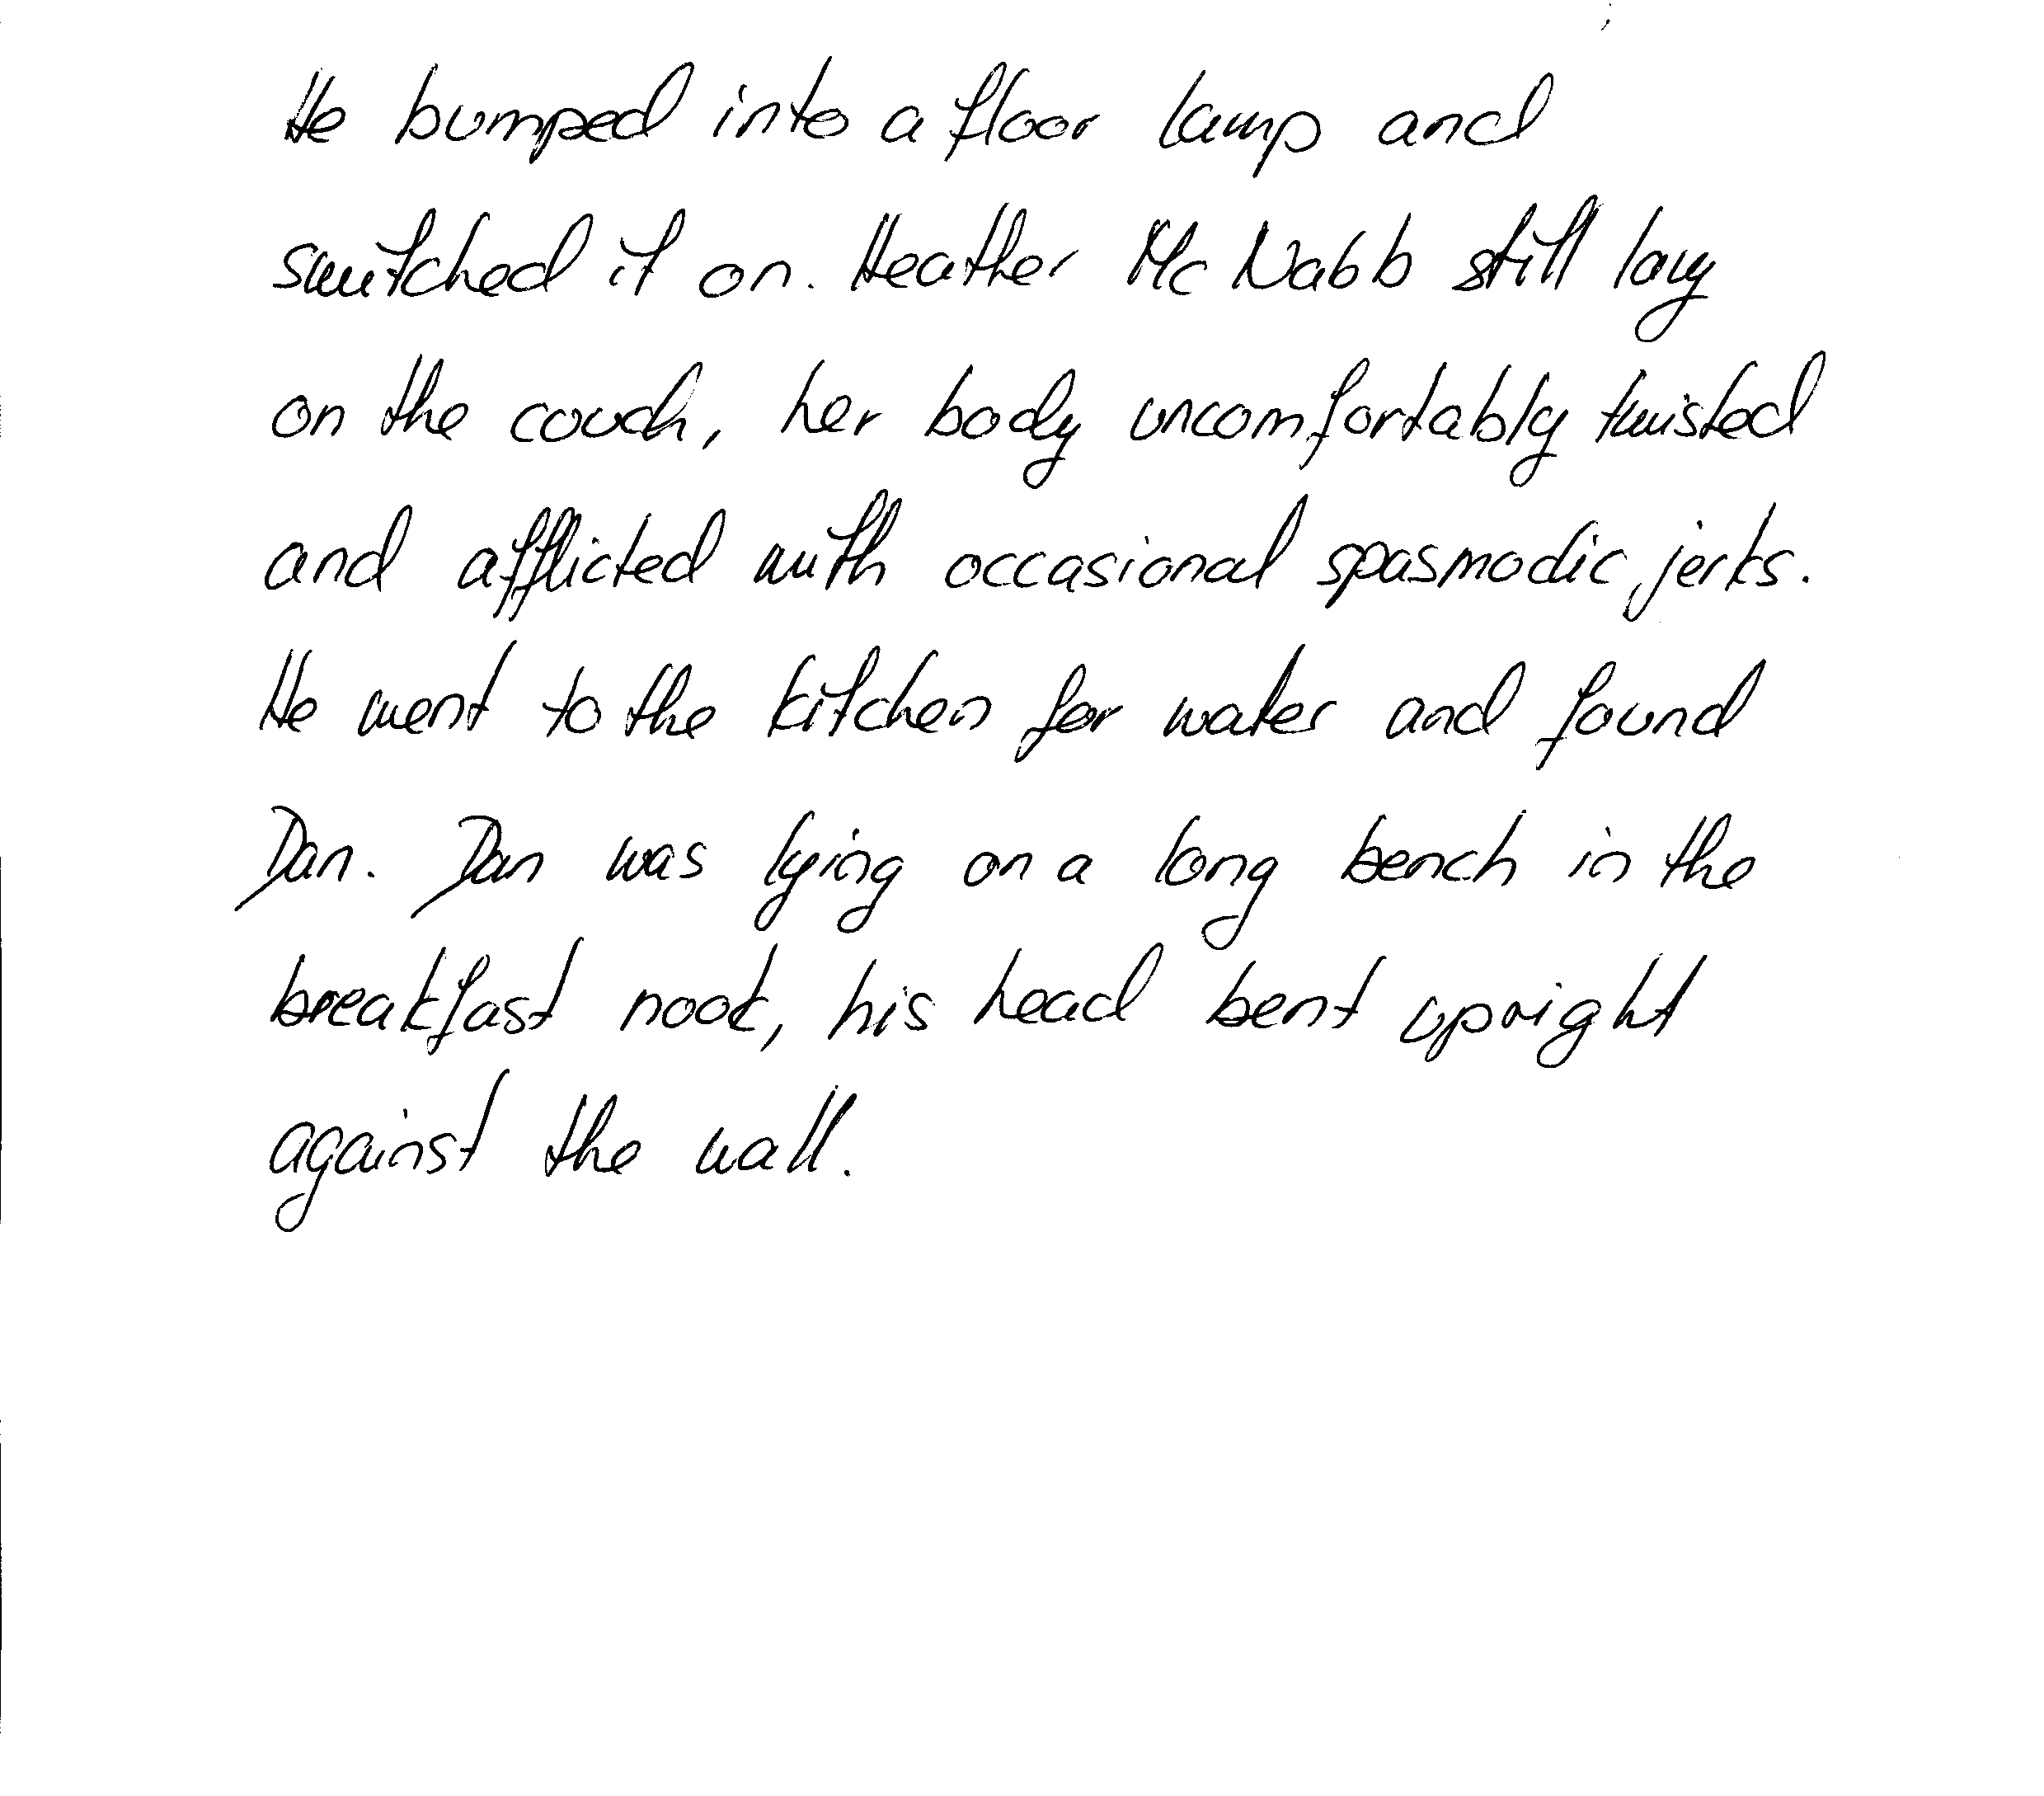 He bumped into a floor lamp and
switched it on. Heather Mc Nabb still lay
on the couch, her body uncomfortably twisted
and afflicted with occasional spasmodic jerks.
He went to the kitchen for water and found
Dan. Dan was lying on a long bench in the
breakfast nook, his head bent upright
against the wall.